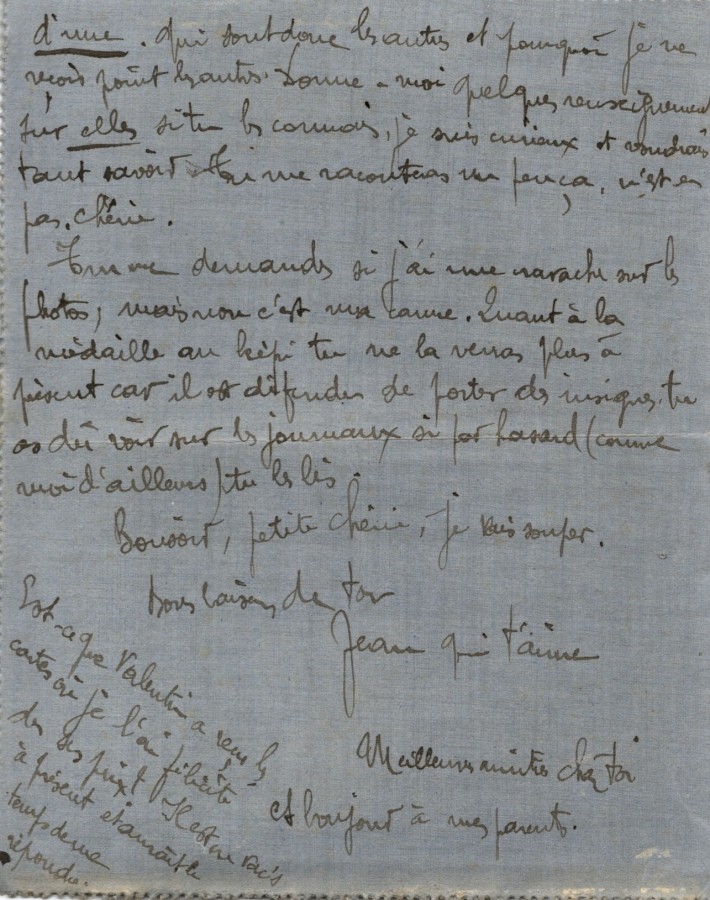 d'une. qui sont donc les autres et pourquoi je ne
reçois point les autres. Donne-moi quelques renseignements
sur elles si tu les connais, je suis curieux et voudrais
tant savoir. Tu me raconteras un peu ça, n'est ce
pas, chérie.
Tu me demandes si j'ai une cravache sur les
photos, mais non c'est ma canne. Quant à la
médaille au képi tu ne la verras plus à
présent car il est défendu de porter des insignes. tu
as dû voir sur les journaux si par hasard (comme
moi d'ailleurs) tu les lis.
Bonsoir, petite chérie, je vais souper.
Bons baisers de ton
Jean qui t'aime
Meilleures amitiés chez toi
et bonjour à mes parents.
Est-ce que Valentin a reçu les
cartes où je l'ai félicité
de ses prix? Il est en vacs
à présent et aurait le
temps de me
répondre.